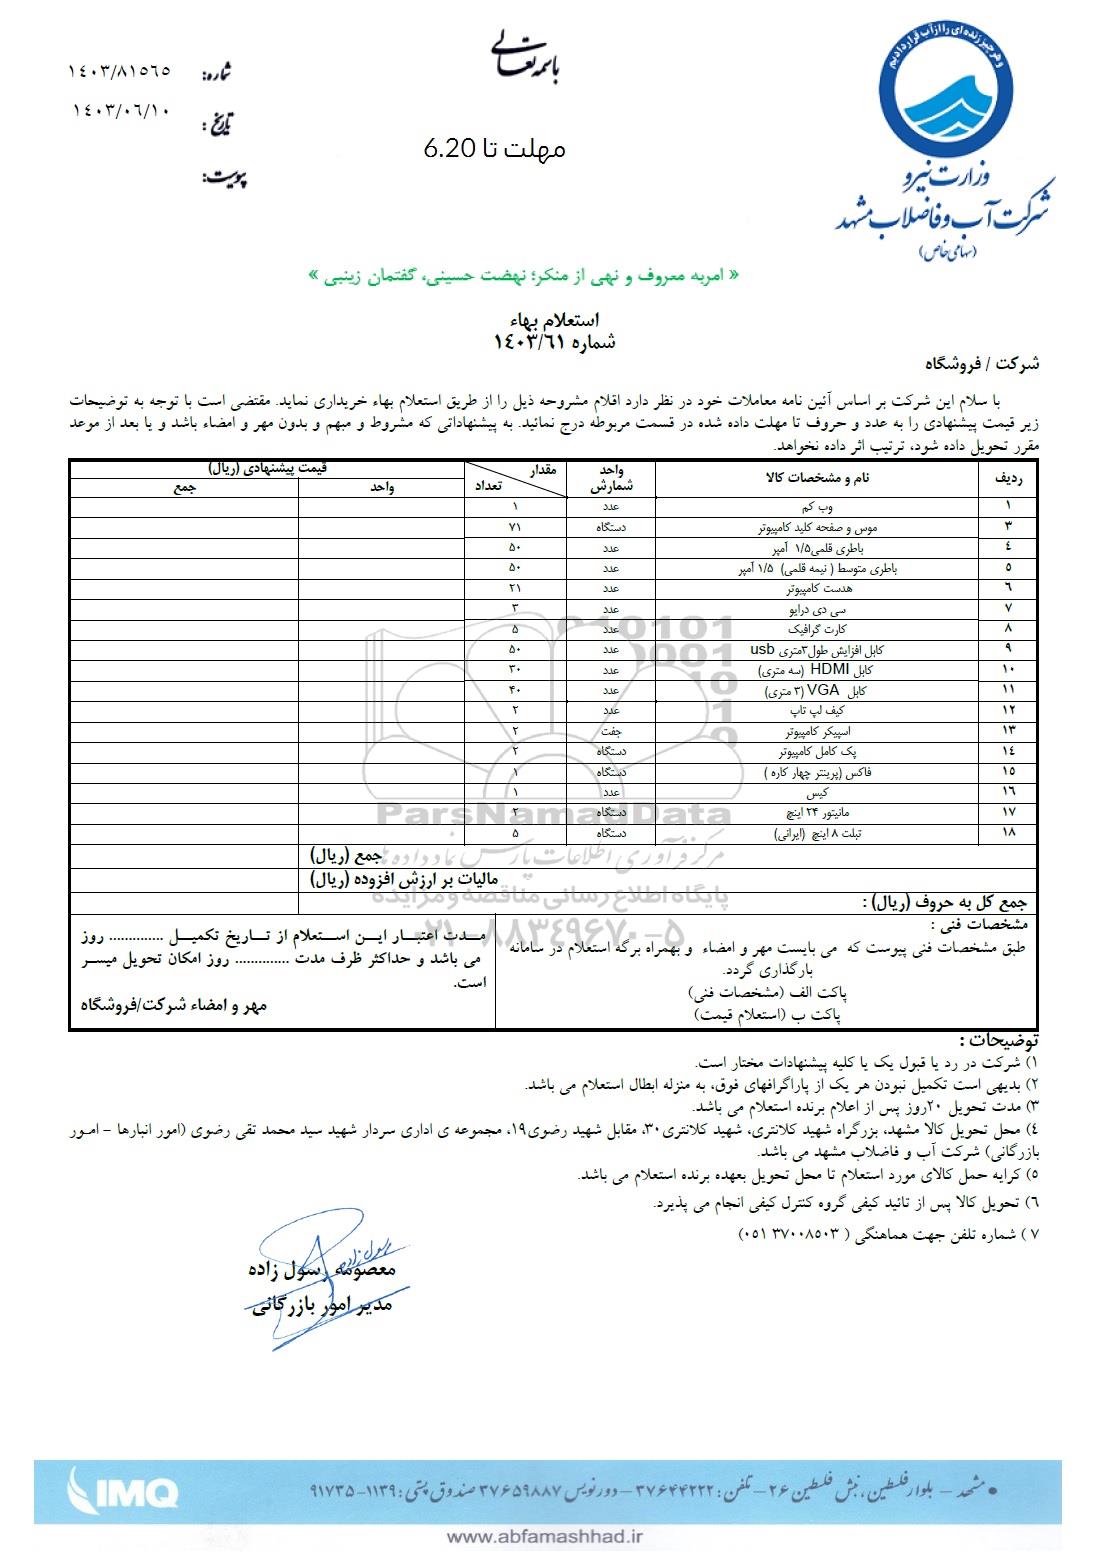 وهر چیز زنده‌ای را از آب قرار دادیم
باسمه تعالی
شماره: ١٤٠٣/٨١٥٦٥
تاریخ: ١٤٠٣/٠٦/١٠
پیوست:
مهلت تا 6.20
وزارت نیرو
شرکت آب و فاضلاب مشهد
(سهامی خاص)
« امربه معروف و نهی از منکر؛ نهضت حسینی، گفتمان زینبی »
استعلام بهاء
شماره ١٤٠٣/٦١
شرکت / فروشگاه
با سلام این شرکت بر اساس آئین نامه معاملات خود در نظر دارد اقلام مشروحه ذیل را از طریق استعلام بهاء خریداری نماید. مقتضی است با توجه به توضیحات
زیر قیمت پیشنهادی را به عدد و حروف تا مهلت داده شده در قسمت مربوطه درج نمائید. به پیشنهاداتی که مشروط و مبهم و بدون مهر و امضاء باشد و یا بعد از موعد
مقرر تحویل داده شود، ترتیب اثر داده نخواهد.
ردیف نام و مشخصات کالا واحد شمارش مقدار تعداد قیمت پیشنهادی (ریال)
واحد جمع
١ وب کم عدد ١
٣ موس و صفحه کلید کامپیوتر دستگاه ٧١
٤ باطری قلمی١/٥ آمپر عدد ٥٠
٥ باطری متوسط ( نیمه قلمی) ١/٥ آمپر عدد ٥٠
٦ هدست کامپیوتر عدد ٢١
٧ سی دی درایو عدد ٣
٨ کارت گرافیک عدد ٥
٩ کابل افزایش طول٣متری usb عدد ٥٠
١٠ کابل HDMI (سه متری) عدد ٣٠
١١ کابل VGA (٣ متری) عدد ۴٠
١٢ کیف لپ تاپ عدد ٢
١٣ اسپیکر کامپیوتر جفت ٢
١٤ پک کامل کامپیوتر دستگاه ٢
١٥ فاکس (پرینتر چهار کاره ) دستگاه ١
١٦ کیس عدد ١
١٧ مانیتور ٢۴ اینچ دستگاه ٢
١٨ تبلت ٨ اینچ (ایرانی) دستگاه ٥
جمع (ریال)
مالیات بر ارزش افزوده (ریال)
جمع کل به حروف (ریال) :
ParsNamadData
مرکز فرآوری اطلاعات پارس نماد داده ها
پایگاه اطلاع رسانی مناقصه و مزایده
۰۲۱-۸۸۳۴۹۶۷۰-۵
مشخصات فنی :
طبق مشخصات فنی پیوست که می بایست مهر و امضاء و بهمراه برگه استعلام در سامانه
بارگذاری گردد.
پاکت الف (مشخصات فنی)
پاکت ب (استعلام قیمت)
مـدت اعتبار ایـن اسـتعلام از تـاریخ تکمیـل ............. روز
می باشد و حداکثر ظرف مدت ............. روز امکان تحویل میسـر
است.
مهر و امضاء شرکت/فروشگاه
توضیحات :
١) شرکت در رد یا قبول یک یا کلیه پیشنهادات مختار است.
٢) بدیهی است تکمیل نبودن هر یک از پاراگرافهای فوق، به منزله ابطال استعلام می باشد.
٣) مدت تحویل ٢٠روز پس از اعلام برنده استعلام می باشد.
٤) محل تحویل کالا مشهد، بزرگراه شهید کلانتری، شهید کلانتری٣٠، مقابل شهید رضوی١٩، مجموعه ی اداری سردار شهید سید محمد تقی رضوی (امور انبارها - امـور
بازرگانی) شرکت آب و فاضلاب مشهد می باشد.
٥) کرایه حمل کالای مورد استعلام تا محل تحویل بعهده برنده استعلام می باشد.
٦) تحویل کالا پس از تائید کیفی گروه کنترل کیفی انجام می پذیرد.
٧ ) شماره تلفن جهت هماهنگی ( ٣٧٠٠٨٥٠٣ ٠٥١)
رسول زاده
معصومه رسول زاده
مدیر امور بازرگانی
• مشهد - بلوار فلسطین، نبش فلسطین ۲۶ - تلفن: ۳۷۶۴۴۲۲۲ - دورنویس ۳۷۶۵۹۸۸۷ صندوق پستی: ۱۱۳۹-۹۱۷۳۵
IMQ
www.abfamashhad.ir